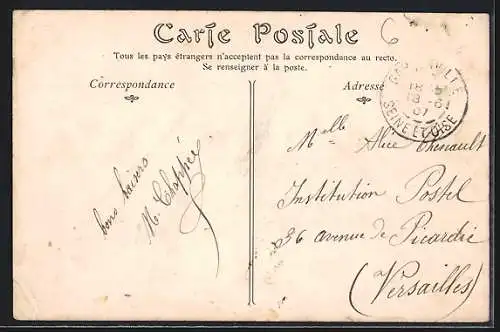 Carte Postale
6
Tous les pays étrangers n'acceptent pas la correspondance au recto.
Se renseigner à la poste.
Correspondance
Adresse
18
18 - 5
07
SEINE ET OISE
bons baisers
M. Chappée
Melle Alice
Institution Postel
36 avenue de Picardie
(Versailles)